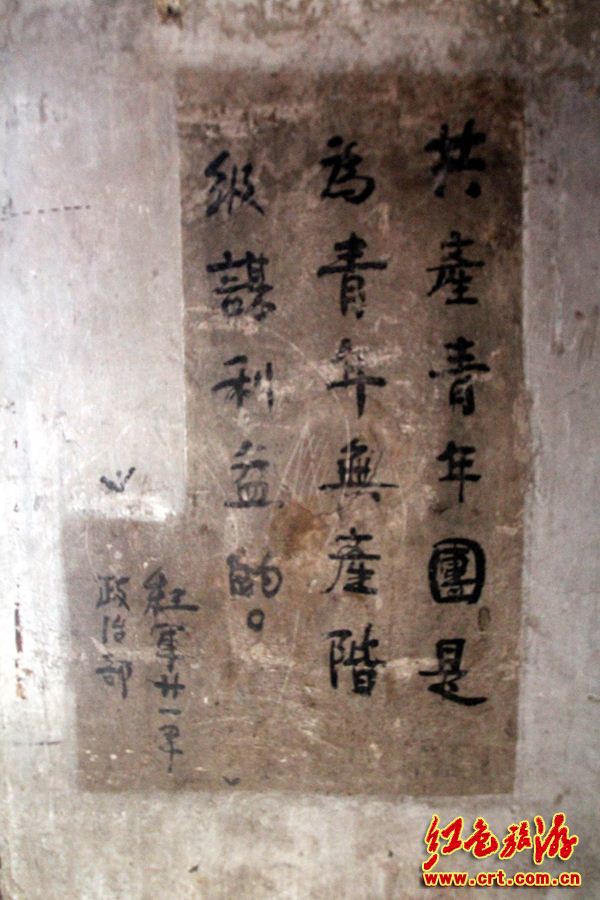 共產青年團是
為青年無產階
級謀利益的。
紅軍廿一军
政治部
红色旅游
www.crt.com.cn